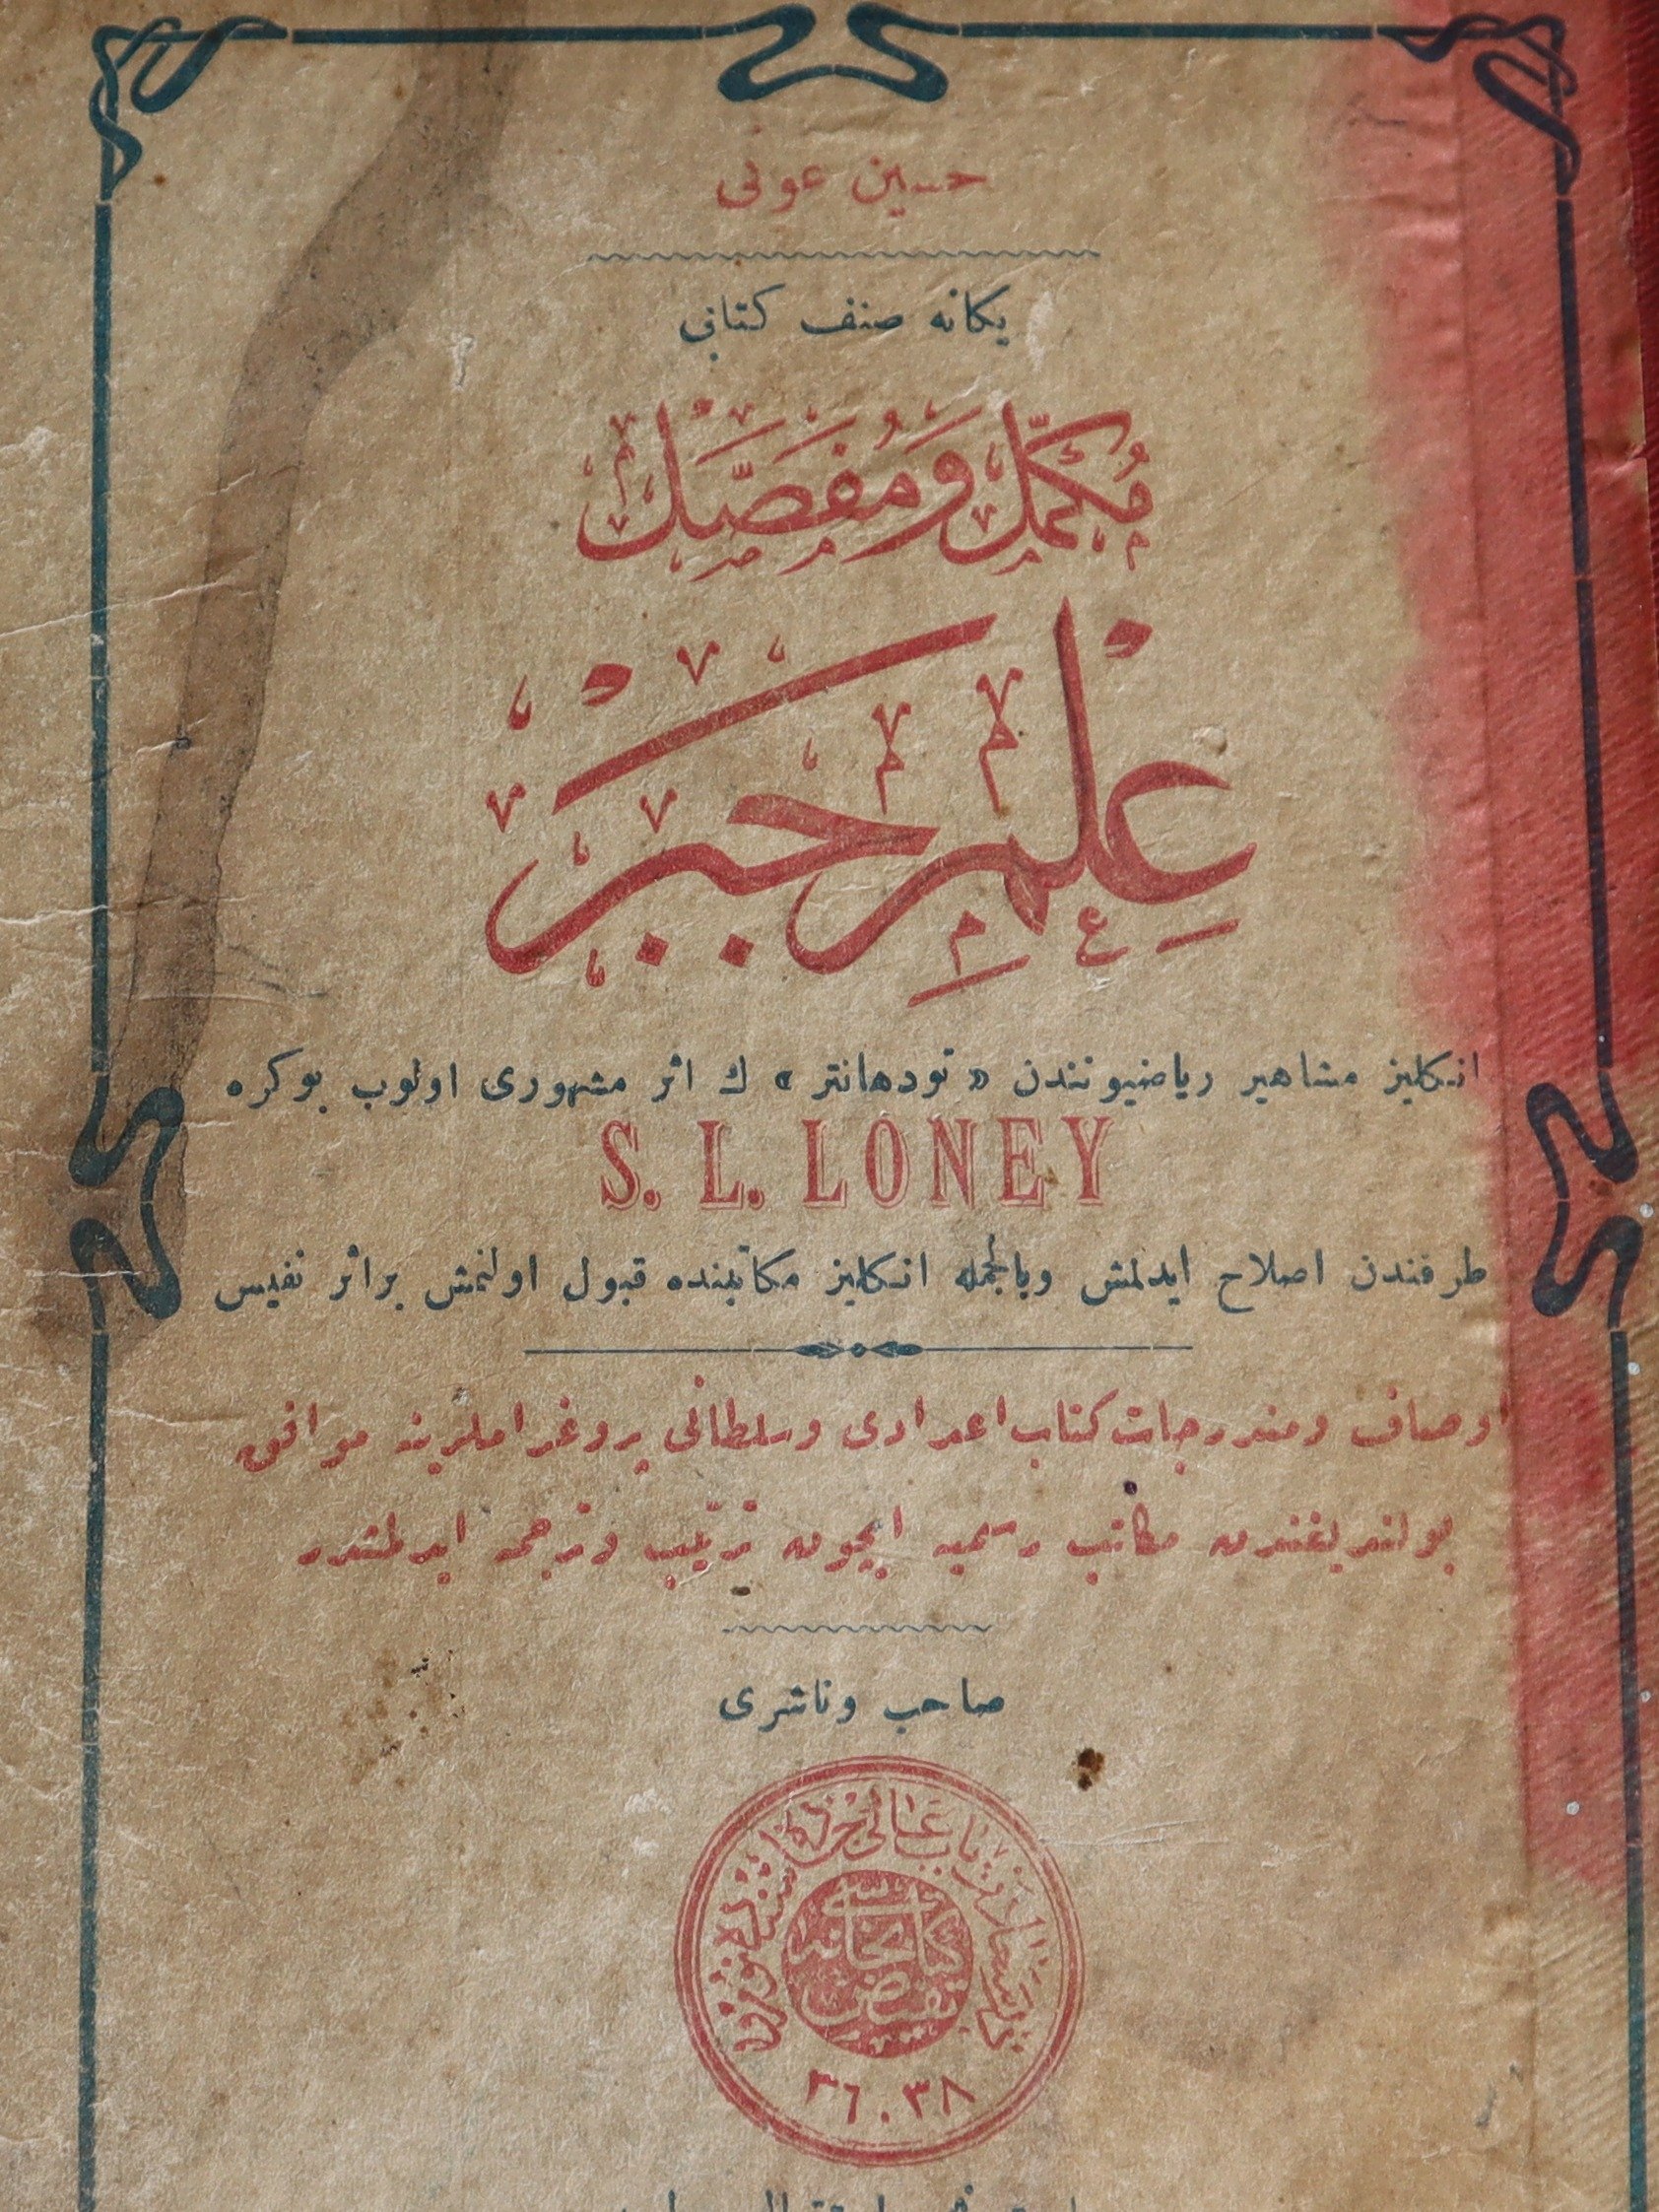 حسین عونی
یکانه صنف کتابی
مُکمّل وَمُفَصَّل
عِلْمِ جَبَرْ
انکلیز مشاهیر ریاضیوننندن «تودهانتر» ك اثر مشهوری اولوب بوکره
S. L. LONEY
طرفندن اصلاح ایدلمش وبالجمله انکلیز مکاتبنده قبول اولنمش براثر نفیس
اوصاف ومندرجات کتاب اعدادی وسلطانی پروغراملرینه موافق
بولندیغندن مکاتب رسمیه ایچون ترتیب وترجمه ایدلمشدر
صاحب وناشری
باب عالی
۳٦۰۳۸